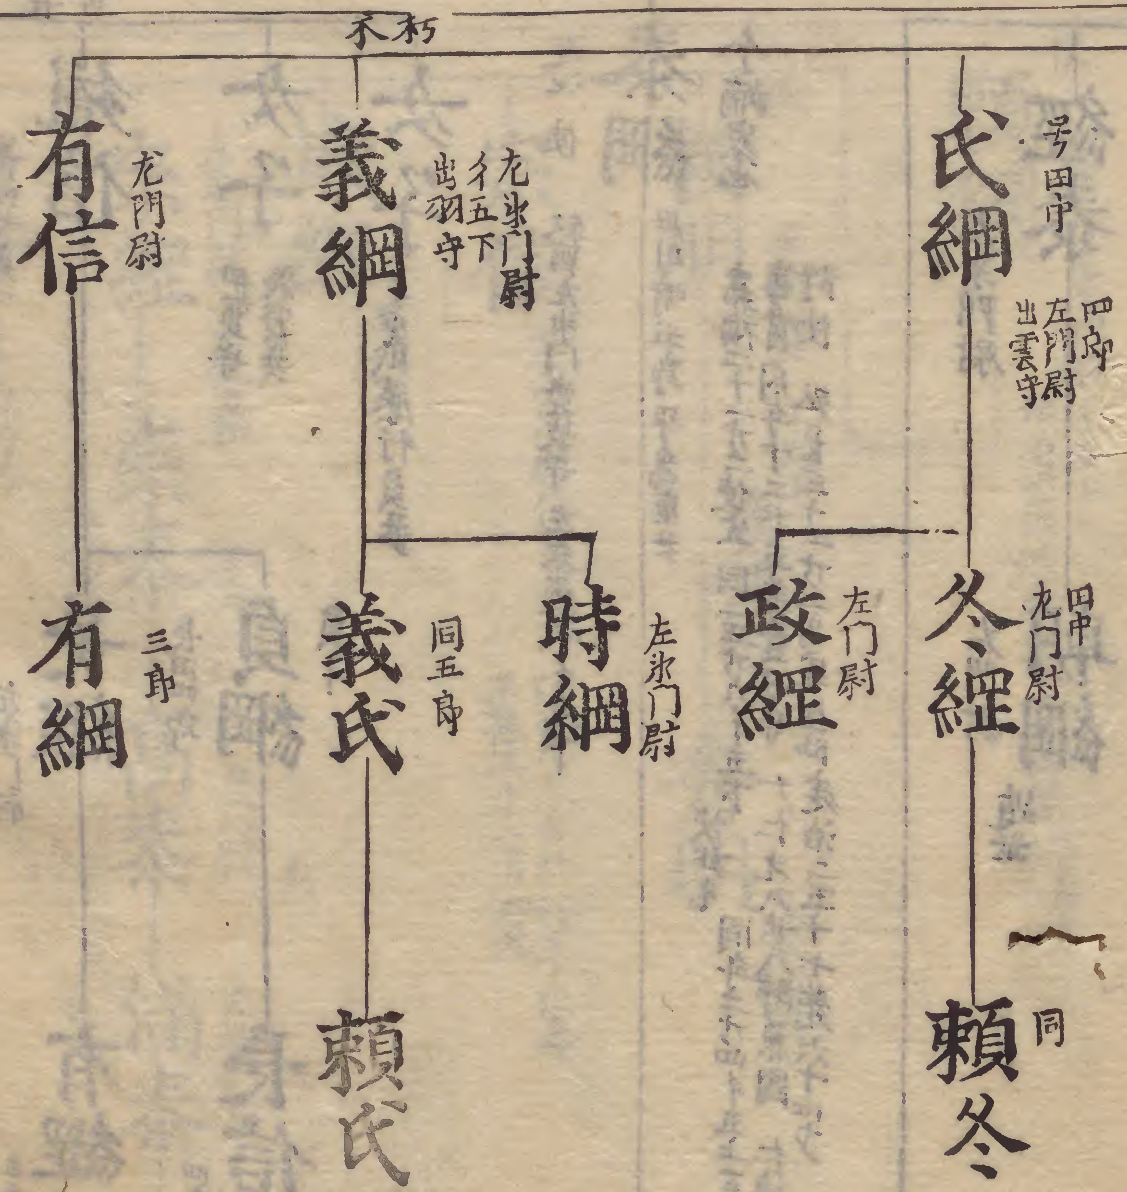 不朽
氏綱
号田中
四郎
左門尉
出雲守
冬經
田中
左门尉
頼冬
同
政經
左门尉
義綱
左氶门尉
彳五下
出羽守
時綱
左氶门尉
義氏
同五郎
頼氏
有信
左門尉
有綱
三郎